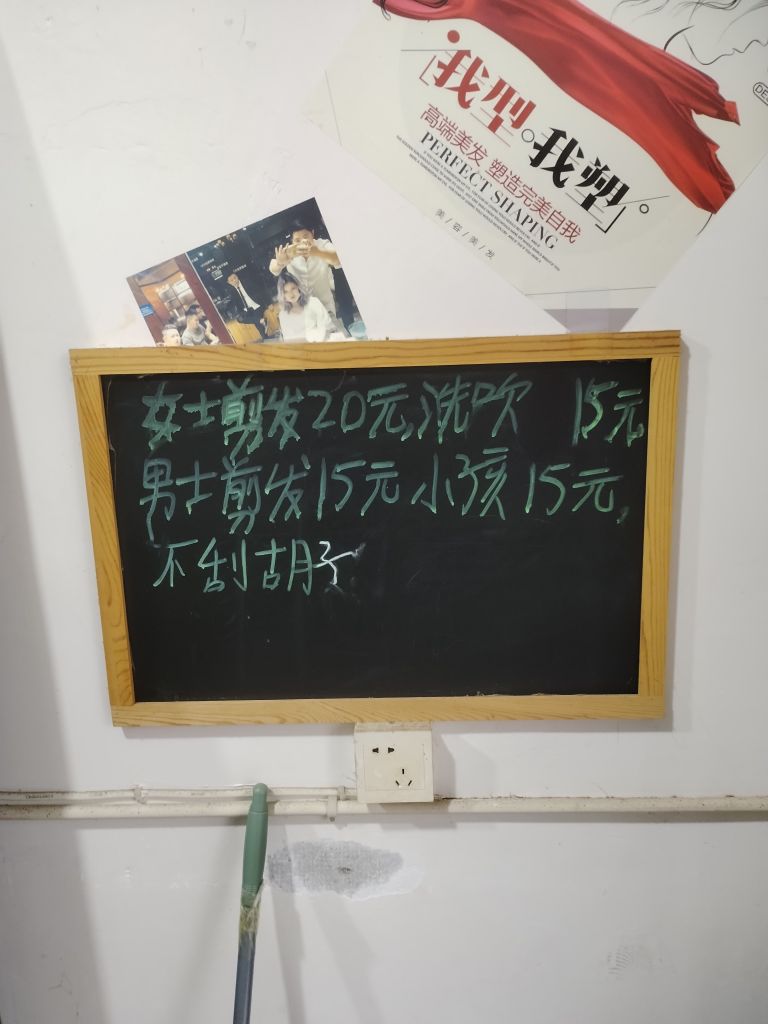 「我型。我塑」。
高端美发 塑造完美自我
PERFECT SHAPING
美/容/美/发
女士剪发20元,洗吹 15元
男士剪发15元 小孩 15元,
不刮胡子